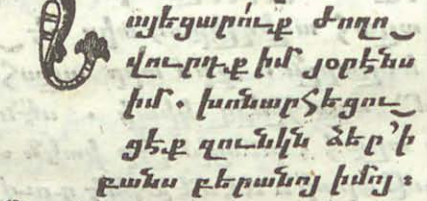 Նայեցարո՛ւք ժողո֊
վուրդ.ք իմ յօրէնս
իմ. խոնարհեցու֊
ցէք զունկն ձեր ՚ի
բանս բերանոյ իմոյ։